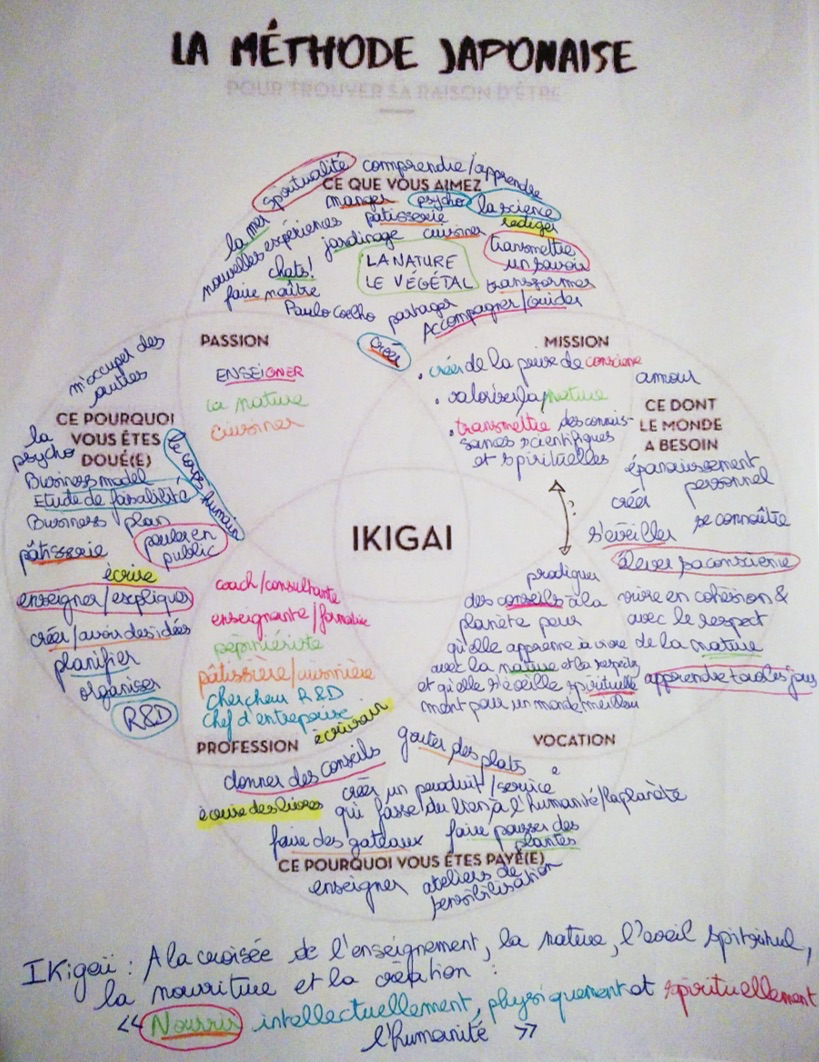 LA MÉTHODE JAPONAISE
POUR TROUVER SA RAISON D'ÊTRE
spiritualité comprendre/apprendre
CE QUE VOUS AIMEZ
manger psycho la science
la mer pâtisserie rédiger
nouvelles expériences jardinage cuisiner
transmettre
un savoir
chats! LA NATURE
LE VÉGÉTAL transformer
faire naître
Paulo Coelho partager Accompagner/Guider
créer
PASSION
ENSEIGNER
la nature
cuisiner
MISSION
. créer de la prise de conscience
. valoriser la nature
. transmettre des connais-
sances scientifiques
et spirituelles
?
m'occuper des
autres
CE POURQUOI
VOUS ÊTES
DOUÉ(E)
la
psycho le corps humain
Business model
Etude de faisabilité
Business plan
parler en
public
pâtisserie
écrire
enseigner/expliquer
créer/avoir des idées
planifier
organiser
R&D
IKIGAI
amour
CE DONT
LE MONDE
A BESOIN
épanouissement
personnel
créer
se connaître
s'éveiller
élever sa conscience
vivre en cohésion &
avec le respect
de la nature
apprendre tous les jours
coach/consultante
enseignante/formatrice
pépiniériste
pâtissière/cuisinière
chercheur R&D
chef d'entreprise
écrivain
PROFESSION
prodiguer
des conseils à la
planète pour
qu'elle apprenne à vivre
avec la nature et la respecte
et qu'elle s'éveille spirituelle
ment pour un monde meilleur
VOCATION
donner des conseils goûter des plats
créer un produit/service
écrire des livres qui fasse du lien à l'humanité/la planète
faire des gateaux faire pousser des
plantes
CE POURQUOI VOUS ÊTES PAYÉ(E)
enseigner ateliers de
sensibilisation
IKigaï : A la croisée de l'enseignement, la nature, l'éveil spirituel,
la nourriture et la création :
<< Nourrir intellectuellement, physiquement et spirituellement
l'humanité >>